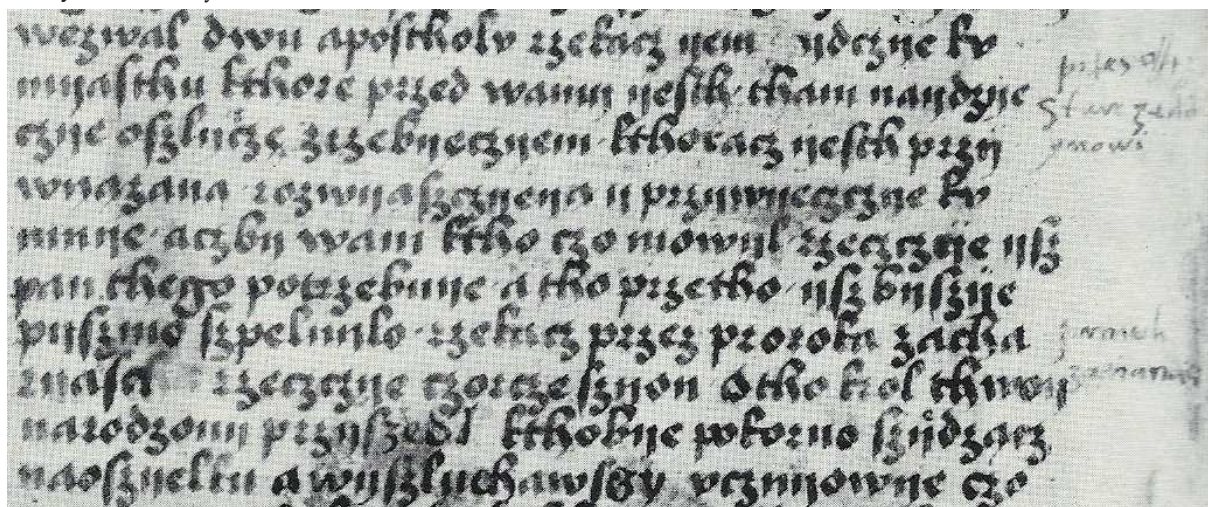 wezwal dwu apostholv rzekacz yem ydczye kv
myasthu kthore przed wamy yesth tham naydzye
czye oszlicze zrzebyeczyem kthoracz yesth przy
wyazana rozwyaszczyeya y przywyeczczye kv
mnye aczby wam ktho czo mowyl rzeczczye ysz
pan thego potrzebuye a tho przetho ysz byszye
pyszmo szpelnylo rzekacz przez proroka zacha
ryasa rzeczczye czorcze szyon Otho krol thwoy
narodzony przyszedl kthobye pokorno szydzacz
naoszyelku a wyszluchawszy vczynyowye czo